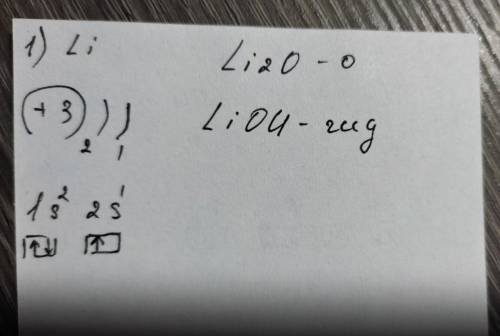 1) Li
Li2O - о
(+3) ) )
2 1
LiOH - гид
1s² 2s¹
↑↓ ↑